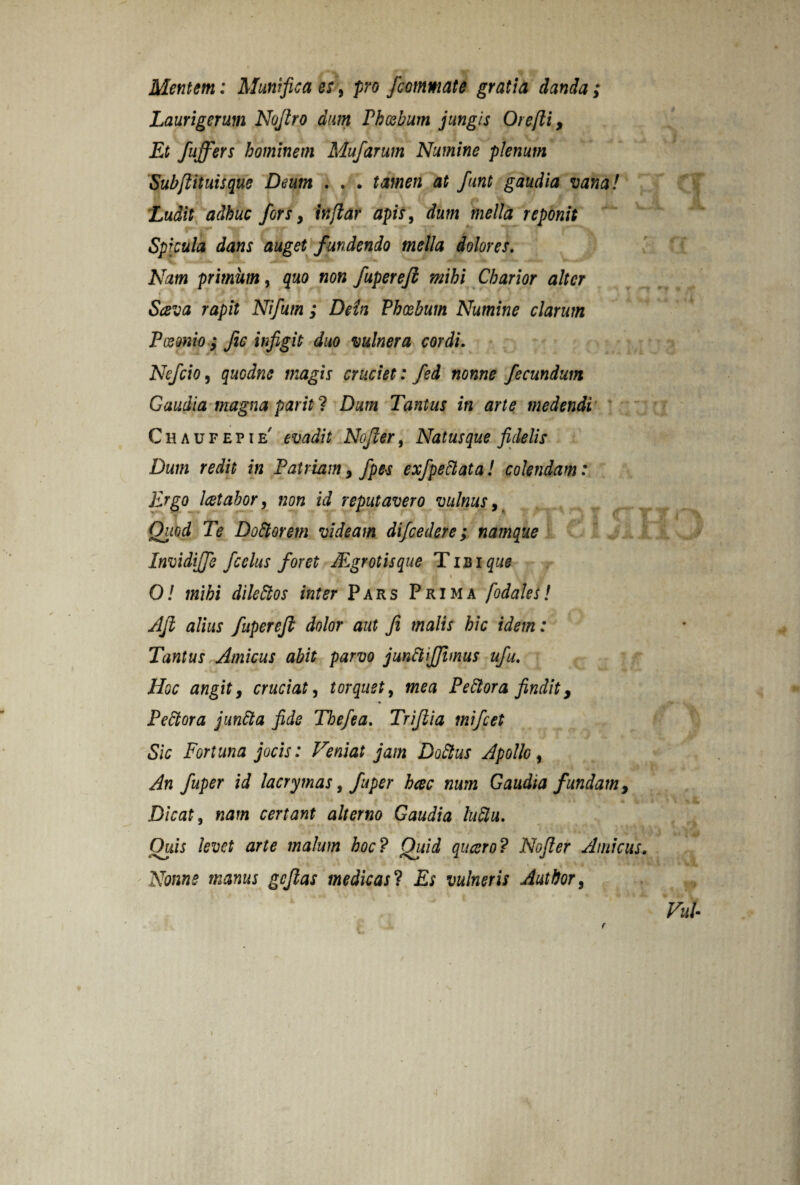 Mentem: Munifica es, pro ſcommate gratia danda;
Laurigerum Noſtro dum Phœbum jungis Oreſti,
Et ſuffers hominem Muſarum Numine plenum
Subſtituisque Deum . . . tamen at ſunt gaudia vana!
Ludit adhuc ſors, inſtar apis, dum mella reponit
Spicula dans auget fundendo mella dolores.
Nam primùm, quo non ſupereſt mihi Charior alter
Sæva rapit Niſum; Dein Phœbum Numine clarum
Pœonio; ſic infigit duo vulnera cordi.
Neſcio, quodne magis cruciet: ſed nonne ſecundum
Gaudia magna parit? Dum Tantus in arte medendi
CHAUFEPIE' evadit Noſter, Natusque fidelis
Dum redit in Patriam, ſpes exſpectata! colendam:
Ergo lætabor, non id reputavero vulnus,
Quod Te Doctorem videam diſcedere; namque
Invidiſſe ſcelus foret Ægrotisque TIBIque
O! mihi dilectos inter PARS PRIMA ſodales!
Aſt alius ſupereſt dolor aut ſi malis hic idem:
Tantus Amicus abit parvo junctiſſimus uſu.
Hoc angit, cruciat, torquet, mea Pectora findit,
Pectora juncta fide Theſea. Triſtia miſcet
Sic Fortuna jocis: Veniat jam Doctus Apollo,
An ſuper id lacrymas, ſuper hæc num Gaudia fundam,
Dicat, nam certant alterno Gaudia luctu.
Quis levet arte malum hoc? Quid quæro? Noſter Amicus.
Nonne manus geſtas medicas? Es vulneris Author,
Vul-